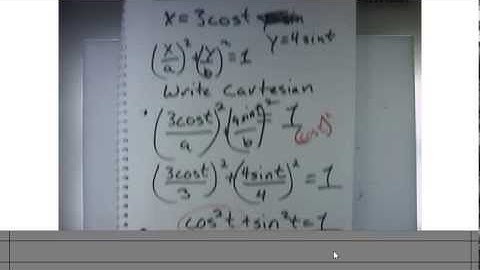 x = 3cost
y = 4sint
(x/a)² + (y/b)² = 1
Write Cartesian
(3cost/a)² + (4sint/b)² = 1
(cost)²
(3cost/3)² + (4sint/4)² = 1
cos²t + sin²t = 1